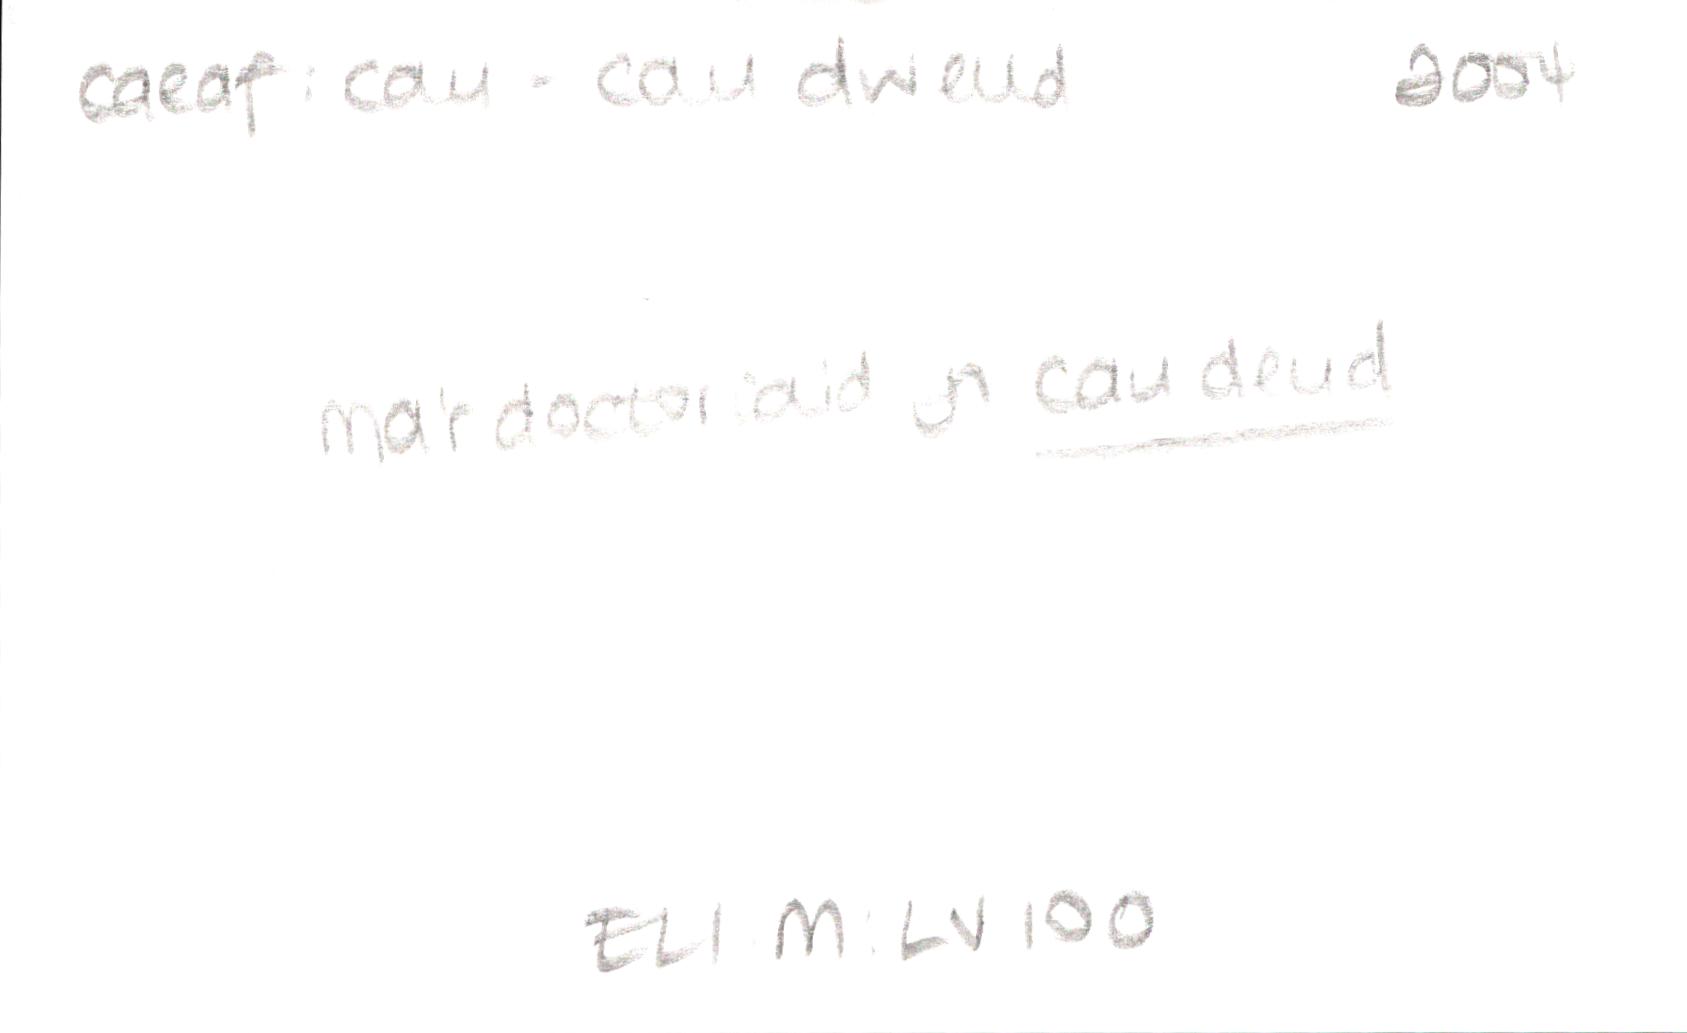 caeaf: cau - cau dweud 2004
ma'r doctoriaid yn cau deud
ELI M: LV 100